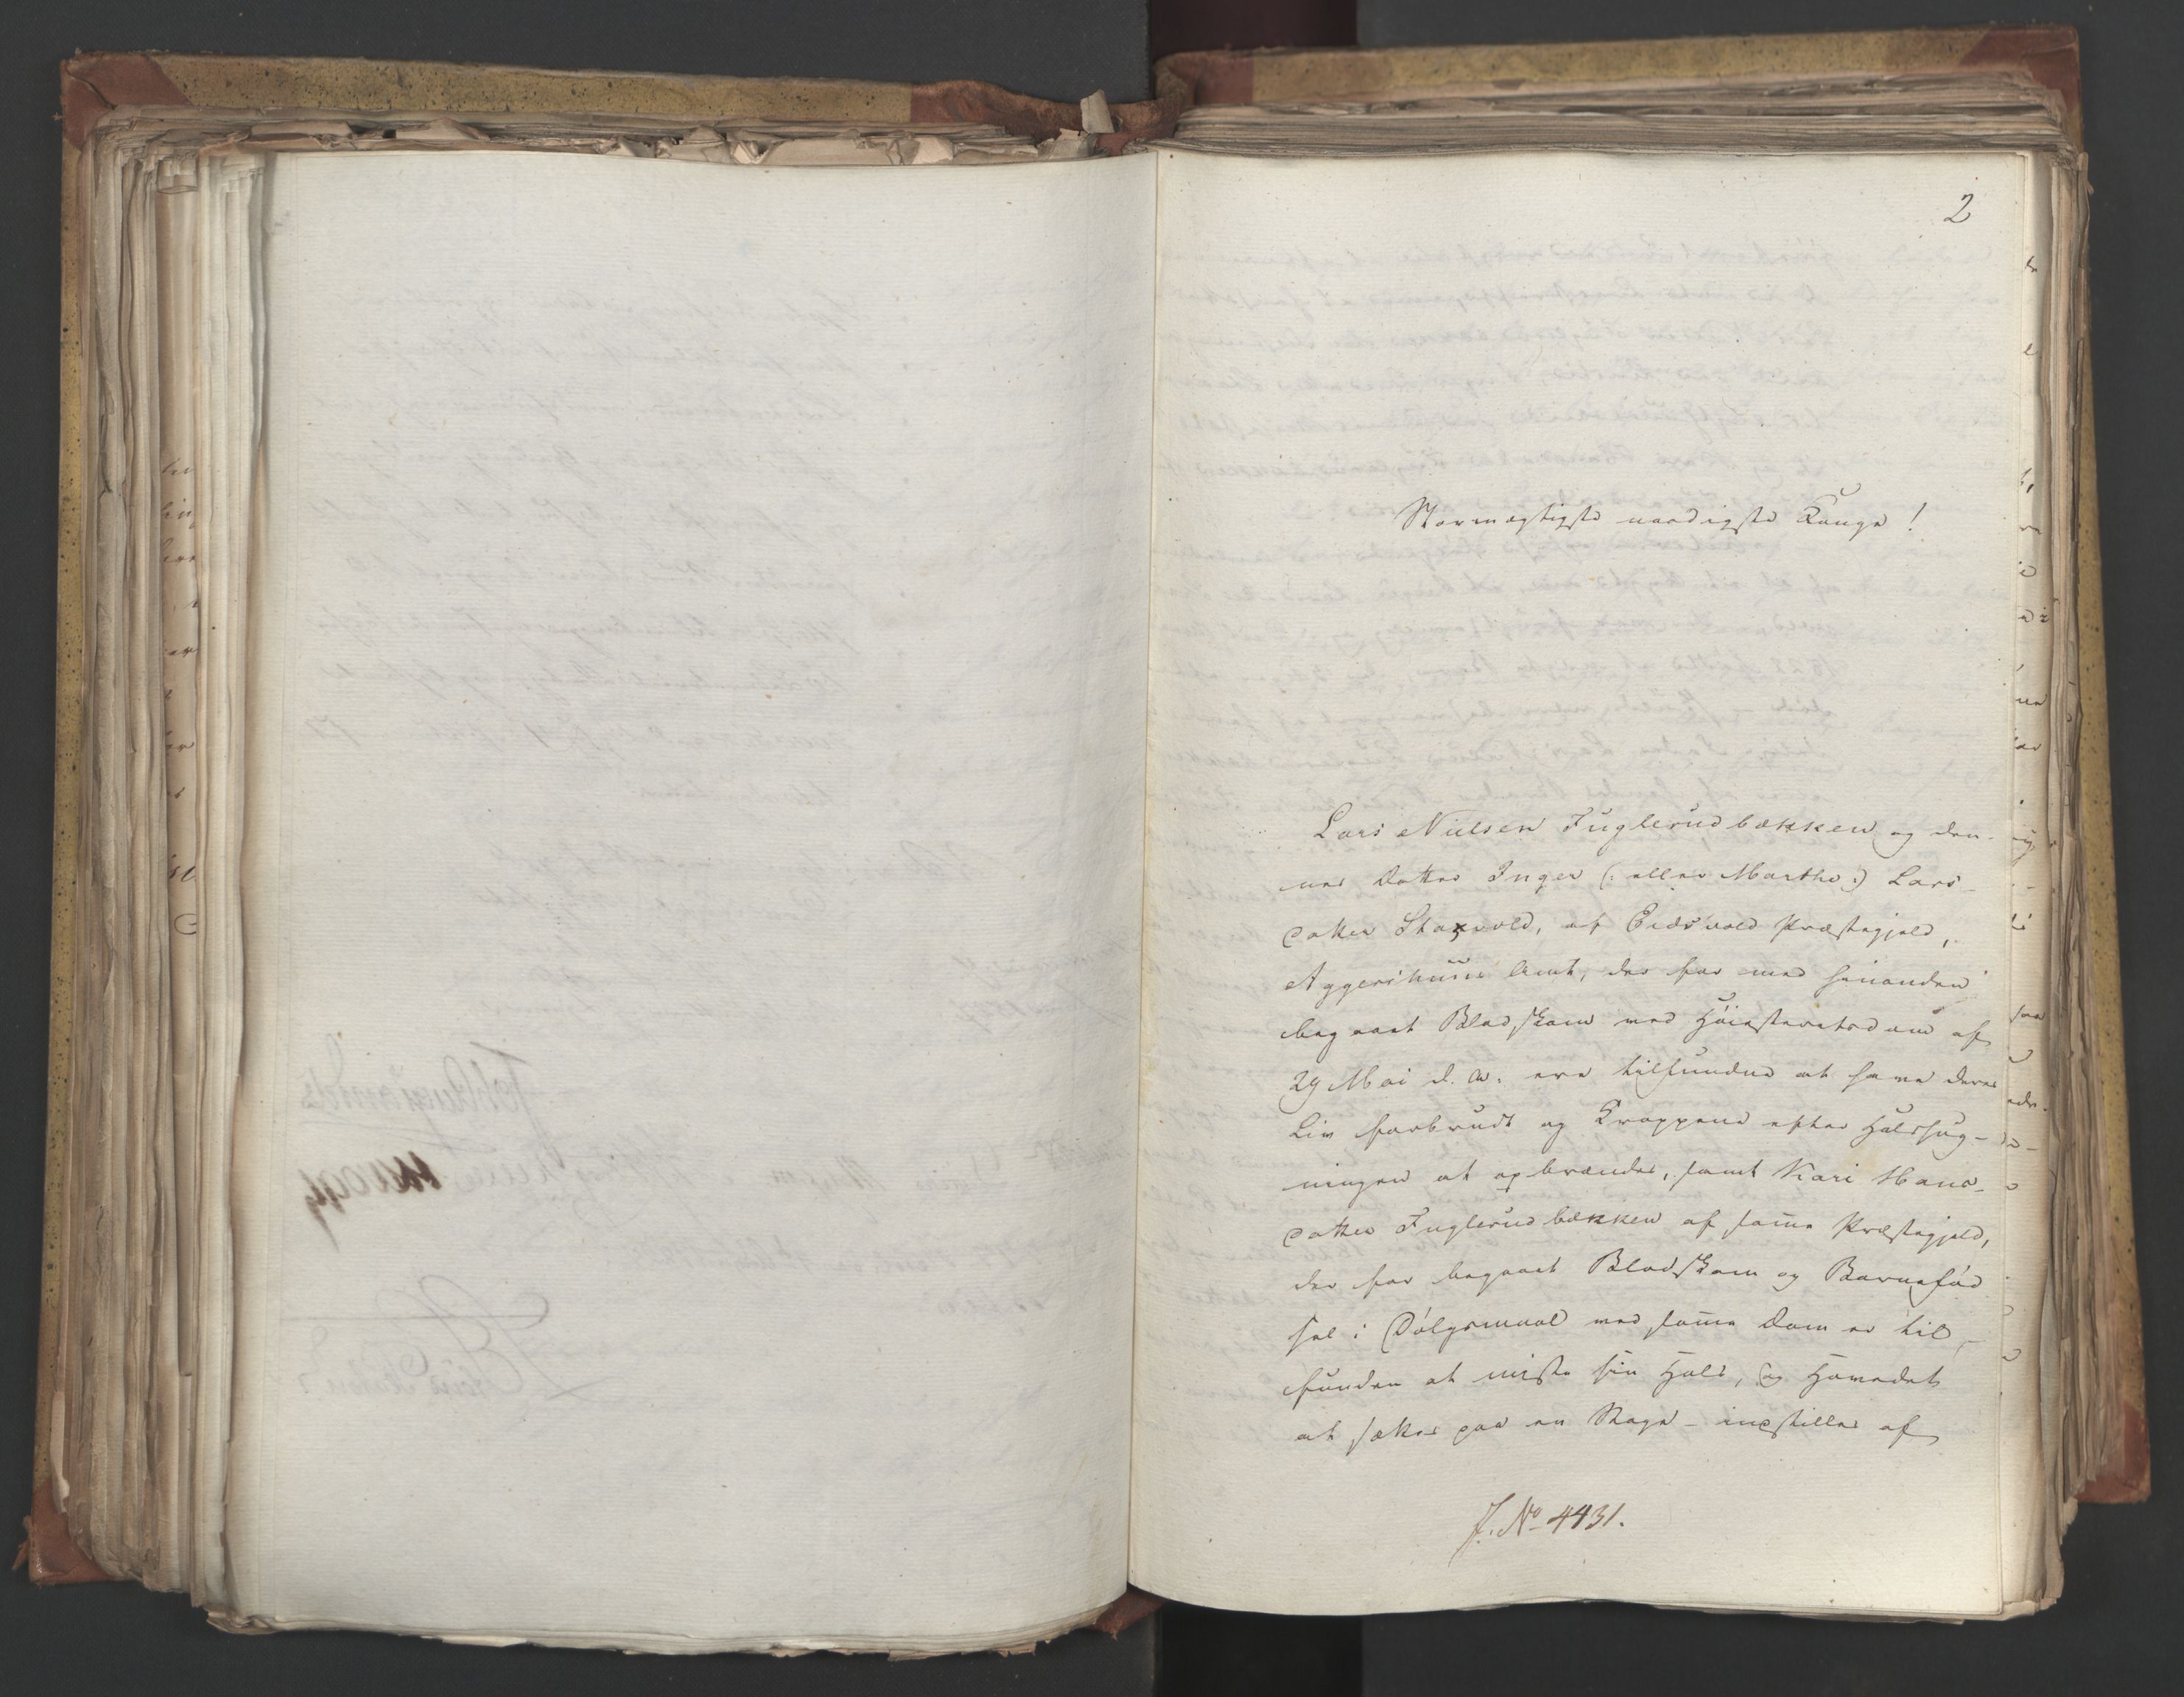 2
Stormægtigste naadigste Konge!
Lars Nielsen Fuglerudbækken og den-
nes Datter Inger (: eller Marthe :) Lars-
datter Staxvold, af Eidsvold Præstegjeld,
Aggershuus Amt, der for med hinanden
begaaet Blodskam ved Høiesteretsdom af
29 Mai d. A. ere tilfundne at have deres
Liv forbrudt og Kroppene efter Halshug-
ningen at opbrændes, samt Kari Hans-
datter Fuglerudbækken af samme Præstegjeld,
der for begaaet Blodskam og Barnefød
sel i Dølgsmaal ved samme Dom er til-
funden at miste sin Hals, og Hovedet
at sættes paa en Stage - indstilles af
J. No 4431.